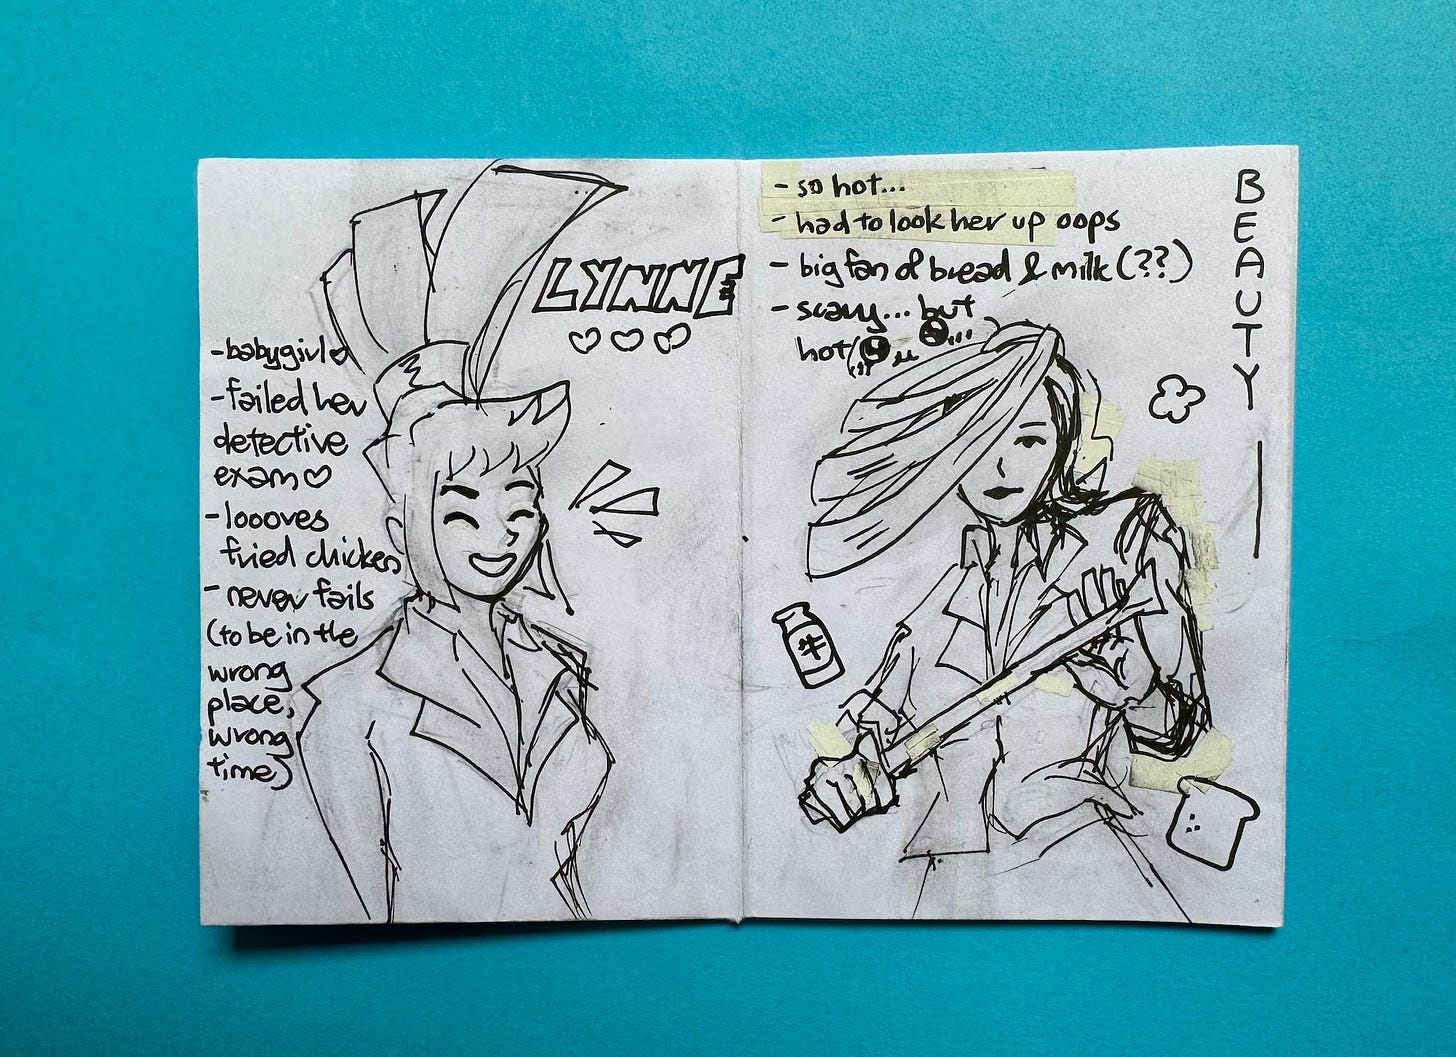 LYNNE
-babygirl♡
-failed her
detective
exam♡
-loooves
fried chicken
-never fails
(to be in the
wrong
place,
wrong
time)
- so hot...
- had to look her up oops
- big fan of bread & milk (??)
- scary... but
hot
BEAUTY
牛